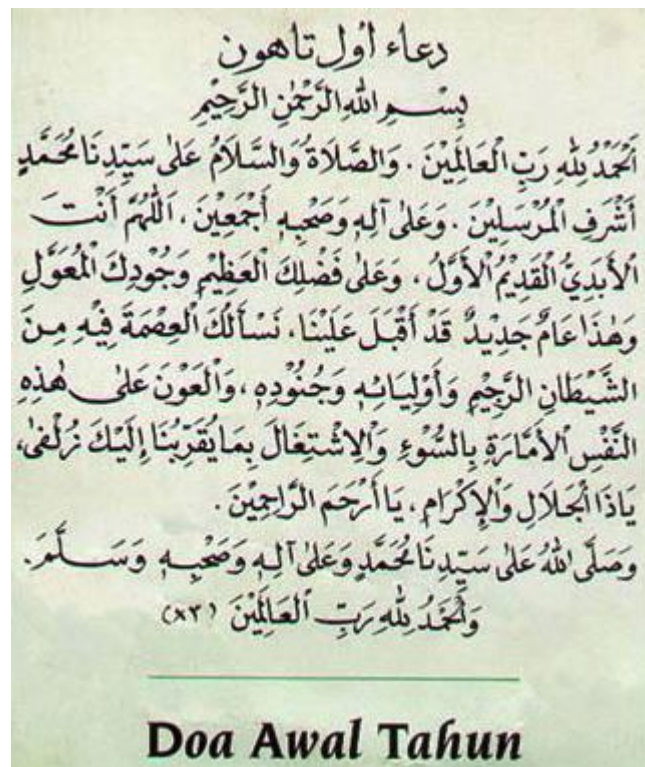 دعاء اول تاهون
بِسْمِ اللهِ الرَّحْمٰنِ الرَّحِيْمِ
اَلْحَمْدُ لِلّٰهِ رَبِّ الْعَالَمِيْنَ . وَالصَّلَاةُ وَالسَّلَامُ عَلٰى سَيِّدِنَا مُحَمَّدٍ
أَشْرَفِ الْمُرْسَلِيْنَ . وَعَلٰى آلِهِ وَصَحْبِهِ أَجْمَعِيْنَ ، اَللّٰهُمَّ أَنْتَ
الْأَبَدِيُّ الْقَدِيْمُ الْأَوَّلُ ، وَعَلٰى فَضْلِكَ الْعَظِيْمِ وَجُوْدِكَ الْمُعَوَّلِ
وَهٰذَا عَامٌ جَدِيْدٌ قَدْ أَقْبَلَ عَلَيْنَا ، نَسْأَلُكَ الْعِصْمَةَ فِيْهِ مِنَ
الشَّيْطَانِ الرَّجِيْمِ وَأَوْلِيَائِهِ وَجُنُوْدِهِ ، وَالْعَوْنَ عَلٰى هٰذِهِ
النَّفْسِ الْأَمَّارَةِ بِالسُّوْءِ وَالْاِشْتِغَالَ بِمَا يُقَرِّبُنَا إِلَيْكَ زُلْفٰى ،
يَا ذَا الْجَلَالِ وَالْإِكْرَامِ ، يَا أَرْحَمَ الرَّاحِمِيْنَ .
وَصَلَّى اللهُ عَلٰى سَيِّدِنَا مُحَمَّدٍ وَعَلٰى آلِهِ وَصَحْبِهِ وَسَلَّمَ .
وَالْحَمْدُ لِلّٰهِ رَبِّ الْعَالَمِيْنَ (×٣)
Doa Awal Tahun